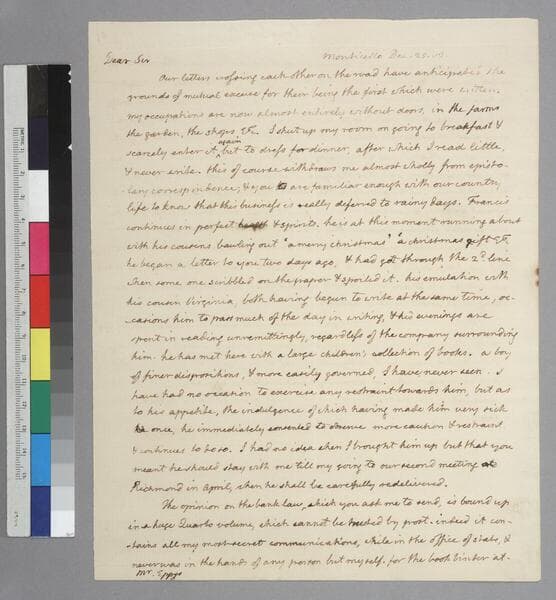 Dear Sir Monticello Dec. 25. 09.
Our letters crossing each other on the road have anticipated the
grounds of mutual excuse for their being the first which were written.
my occupations are now almost entirely without doors, in the farms
the garden, the shops &c. I shut up my room on going to breakfast &
scarcely enter it again but to dress for dinner, after which I read little
& never write. this of course withdraws me almost wholly from episto-
-lary correspondence, & you are familiar enough with our country
life to know that this business is really deferred to rainy days. Francis
continues in perfect health & spirits. he is at this moment running about
with his cousins bawling out 'a merry christmas' 'a christmas gift' &c
he began a letter to you two days ago, & had got through the 2d. line
when some one scribbled on the paper & spoiled it. his emulation with
his cousin Virginia both having begun to write at the same time, oc-
-casions him to pass much of the day in writing, & his evenings are
spent in reading unremittingly, regardless of the company surrounding
him. he has met here with a large children's collection of books. a boy
of finer dispositions, & more easily governed, I have never seen. I
have had no occasion to exercise any restraint towards him, but as
to his appetite, the indulgence of which having made him very sick
once, he immediately consented to observe more caution & restraint,
& continues to do so. I had no idea when I brought him up but that you
meant he should stay with me till my going to our second meeting at
Richmond in April, when he shall be carefully redelivered.
The opinion on the bank law, which you ask me to send, is bound up
in a huge Quarto volume, which cannot be trusted by post. indeed it con-
-tains all my most secret communications, while in the office of state, &
never was in the hands of any person but myself. for the book binder at-
Mr. Eppes